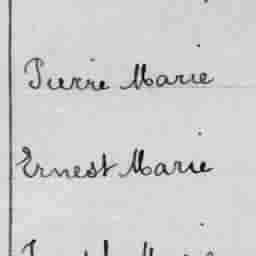 Pierre Marie
Ernest Marie